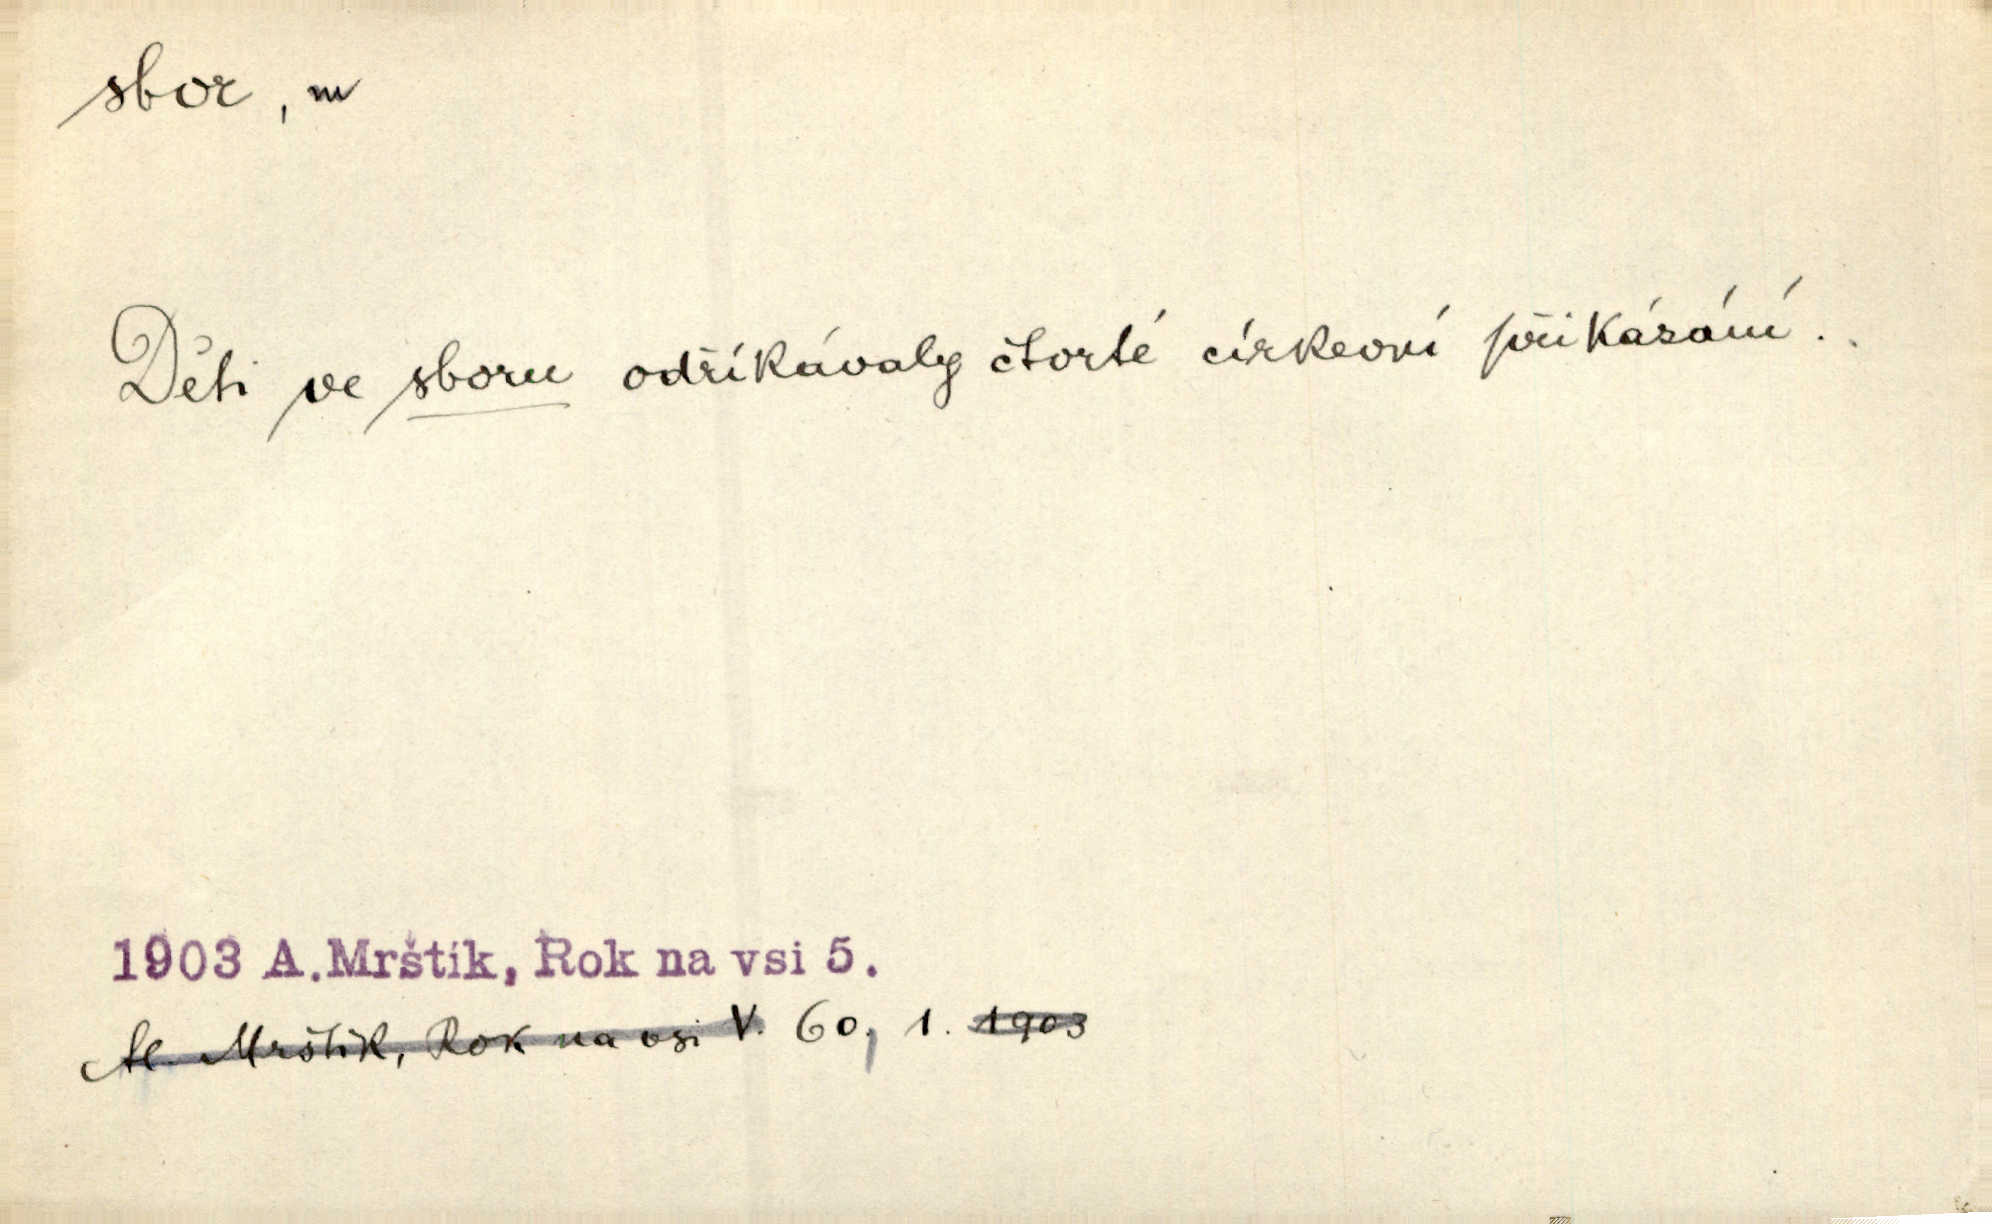 sbor, m
Děti ve sboru odříkávaly čtvrté církevní přikázání..
1903 A.Mrštík, Rok na vsi 5.
Al. Mrštík, Rok na vsi V. 60, 1. 1903